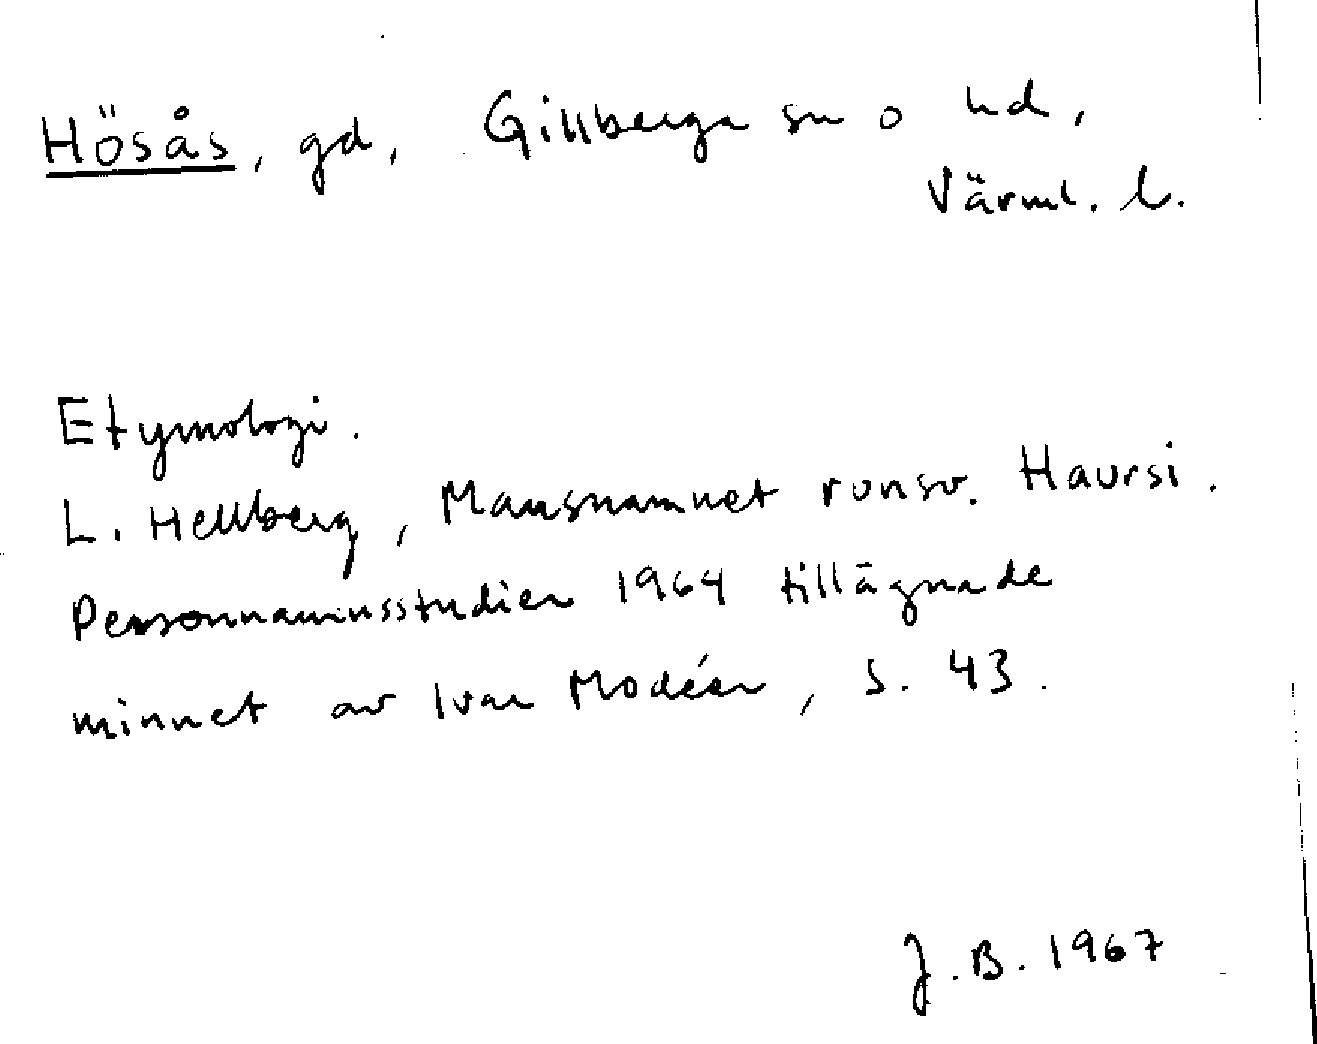 Hösås, gd, Gillberga sn o hd,
Värml. l.
Etymologi.
L. Hellberg, Mansnamnet runsv. Haursi.
Personnamnsstudier 1964 tillägnade
minnet av Ivar Modéer, s. 43.
J. B. 1967